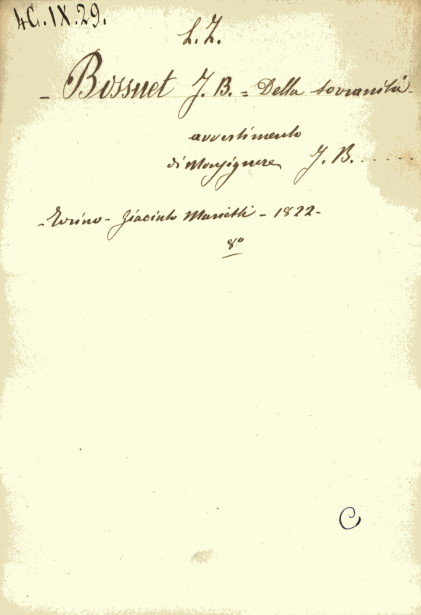 4C.IX.29.
L.Z.
- Bossuet J. B. = Della sovranità -
avvertimento
di Monsignore J. B. . . . . .
- Torino - Giacinto Marietti - 1822 -
8º
C